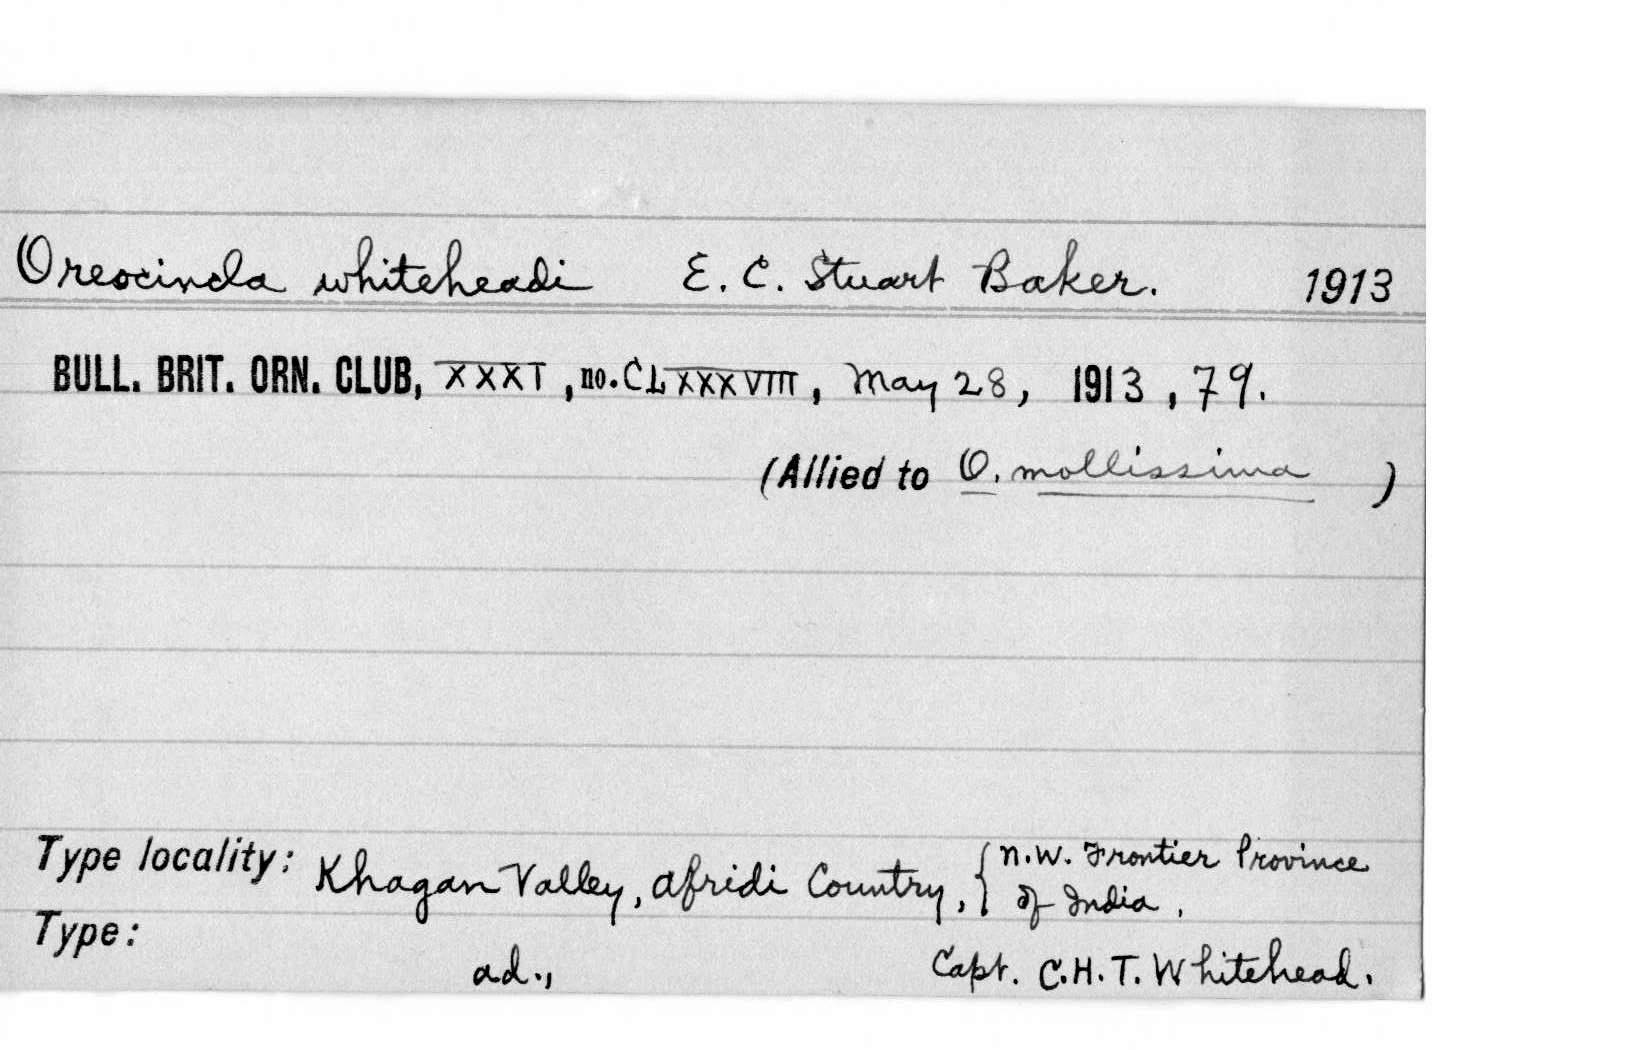 Oreocincla whiteheadi E. C. Stuart Baker. 1913
BULL. BRIT. ORN. CLUB, XXXI, no. CLXXXVIII, May 28, 1913, 79.
(Allied to O. mollissima )
Type locality: Khagan Valley, Afridi Country, { N.W. Frontier Province
of India.
Type:
ad., Capt. C.H.T. Whitehead.